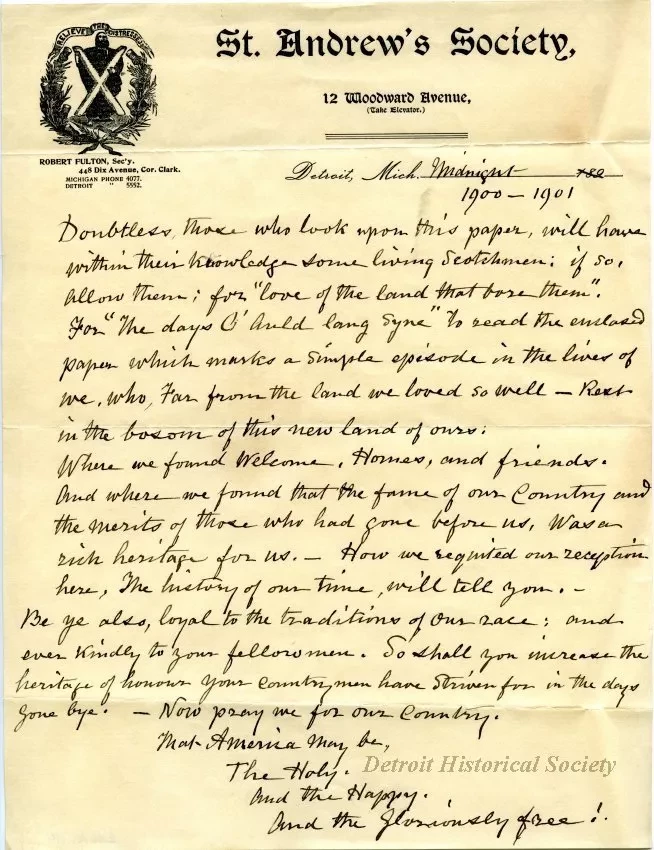 RELIEVE THE DISTRESSED
St. Andrew's Society,
12 Woodward Avenue,
(Take Elevator.)
ROBERT FULTON, Sec'y.
448 Dix Avenue, Cor. Clark.
MICHIGAN PHONE 4077.
DETROIT " 5552.
Detroit, Mich. Midnight 189
1900 — 1901
Doubtless, those who look upon this paper, will have
within their knowledge some living Scotchmen: if so,
allow them; for "love of the land that bore them".
For "The days O' Auld lang Syne" to read the enclosed
paper which marks a simple episode in the lives of
we, who, Far from the land we loved so well — Rest
in the bosom of this new land of ours:
Where we found Welcome, Homes, and friends.
And where we found that the fame of our Country and
the merits of those who had gone before us, Was a
rich heritage for us. — How we requited our reception
here, The history of our time, will tell you. —
Be ye also, loyal to the traditions of our race; and
ever kindly to your fellowmen. So shall you increase the
heritage of honour your countrymen have striven for in the days
gone bye. — Now pray we for our Country.
That America may be,
The Holy.
And the Happy.
And the Gloriously free!
Detroit Historical Society